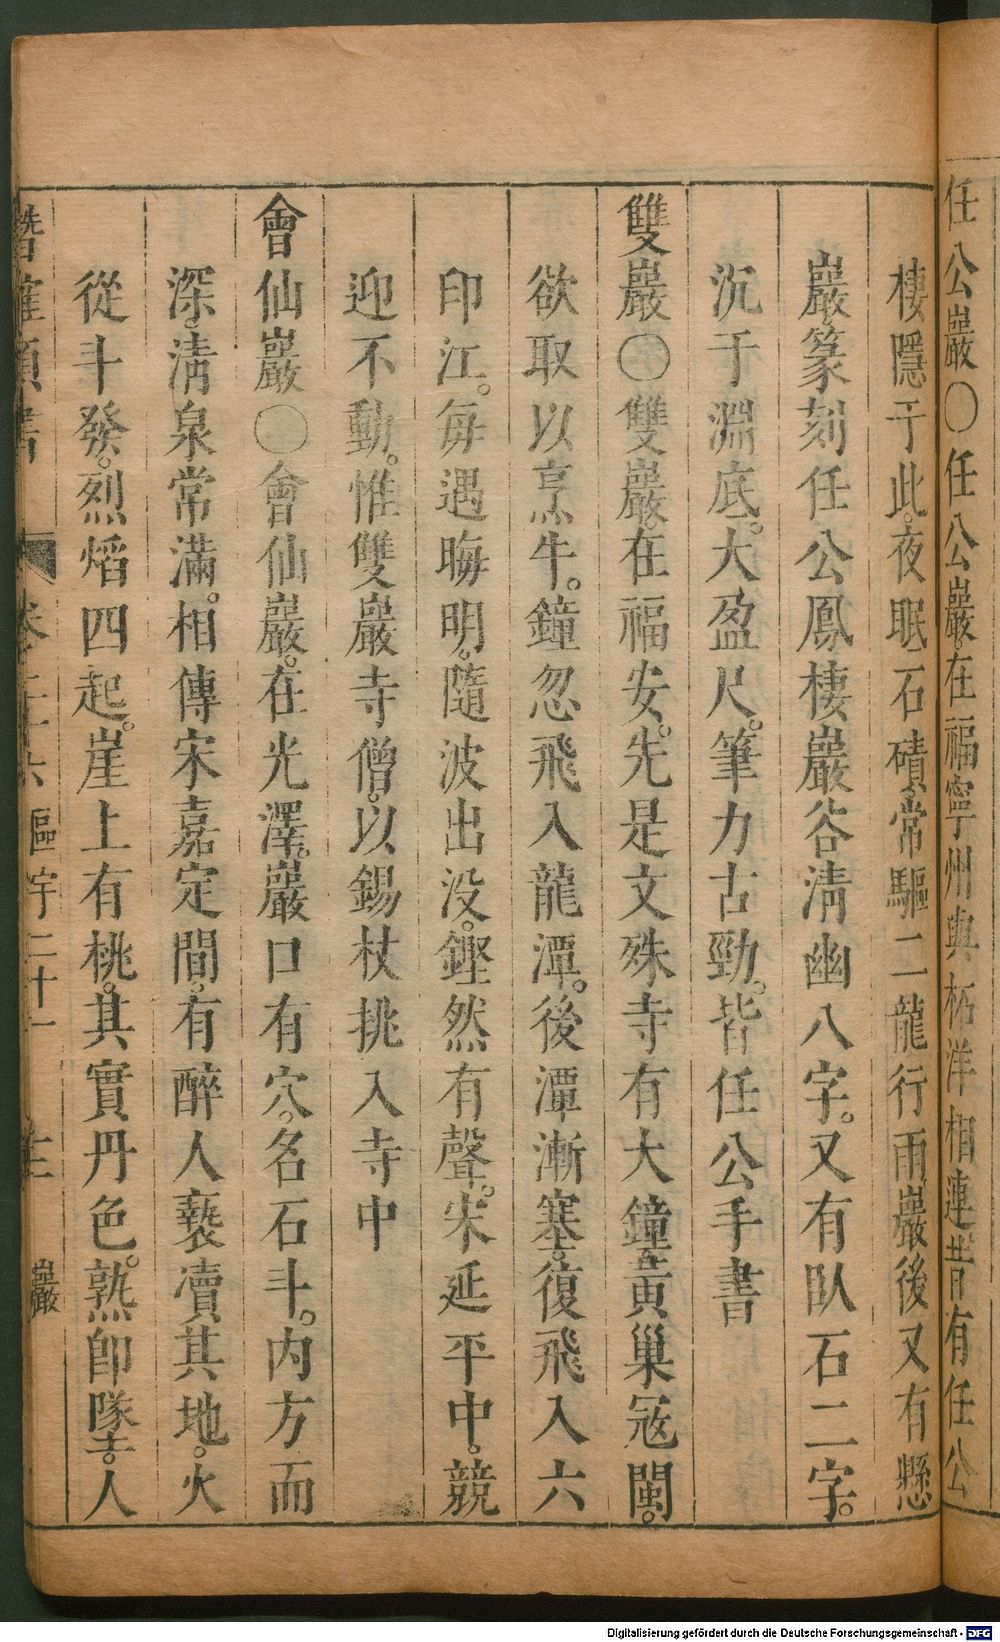 任公巖〇任公巖。在福寧州與柘洋相連昔有任公
棲隱于此。夜眠石磧。常驅二龍行雨巖後又有懸
巖。篆刻任公鳳棲巖谷淸幽八字。又有臥石二字。
沉于淵底。大盈尺。筆力古勁。皆任公手書
雙巖〇雙巖。在福安。先是文殊寺有大鐘。黃巢寇閩。
欲取以烹牛。鐘忽飛入龍潭。後潭漸塞。復飛入六
印江。每遇晦明。隨波出没。鏗然有聲。宋延平中。競
迎不動。惟雙巖寺僧。以錫杖挑入寺中
會仙巖〇會仙巖。在光澤。巖口有穴。名石斗。内方而
深。淸泉常滿。相傳宋嘉定間。有醉人褻瀆其地。火
從斗發。烈熖四起。崖上有桃。其實丹色。熟卽墜。人
類書 卷二十六 區宇二十一 巖
Digitalisierung gefördert durch die Deutsche Forschungsgemeinschaft - DFG